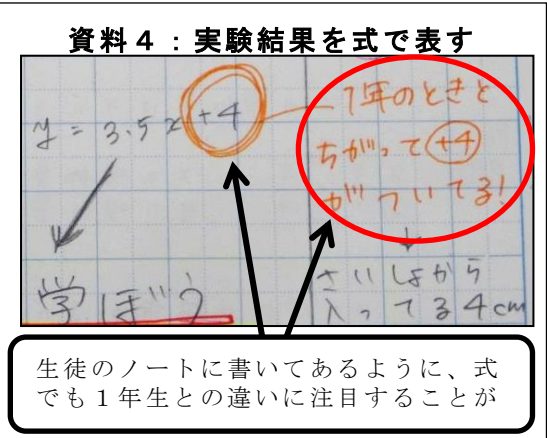 資料４：実験結果を式で表す
y = 3.5x+4
1年のときと
ちがって+4
がついてる!
学ぼう
さいしょから
入ってる4cm
生徒のノートに書いてあるように、式
でも１年生との違いに注目することが